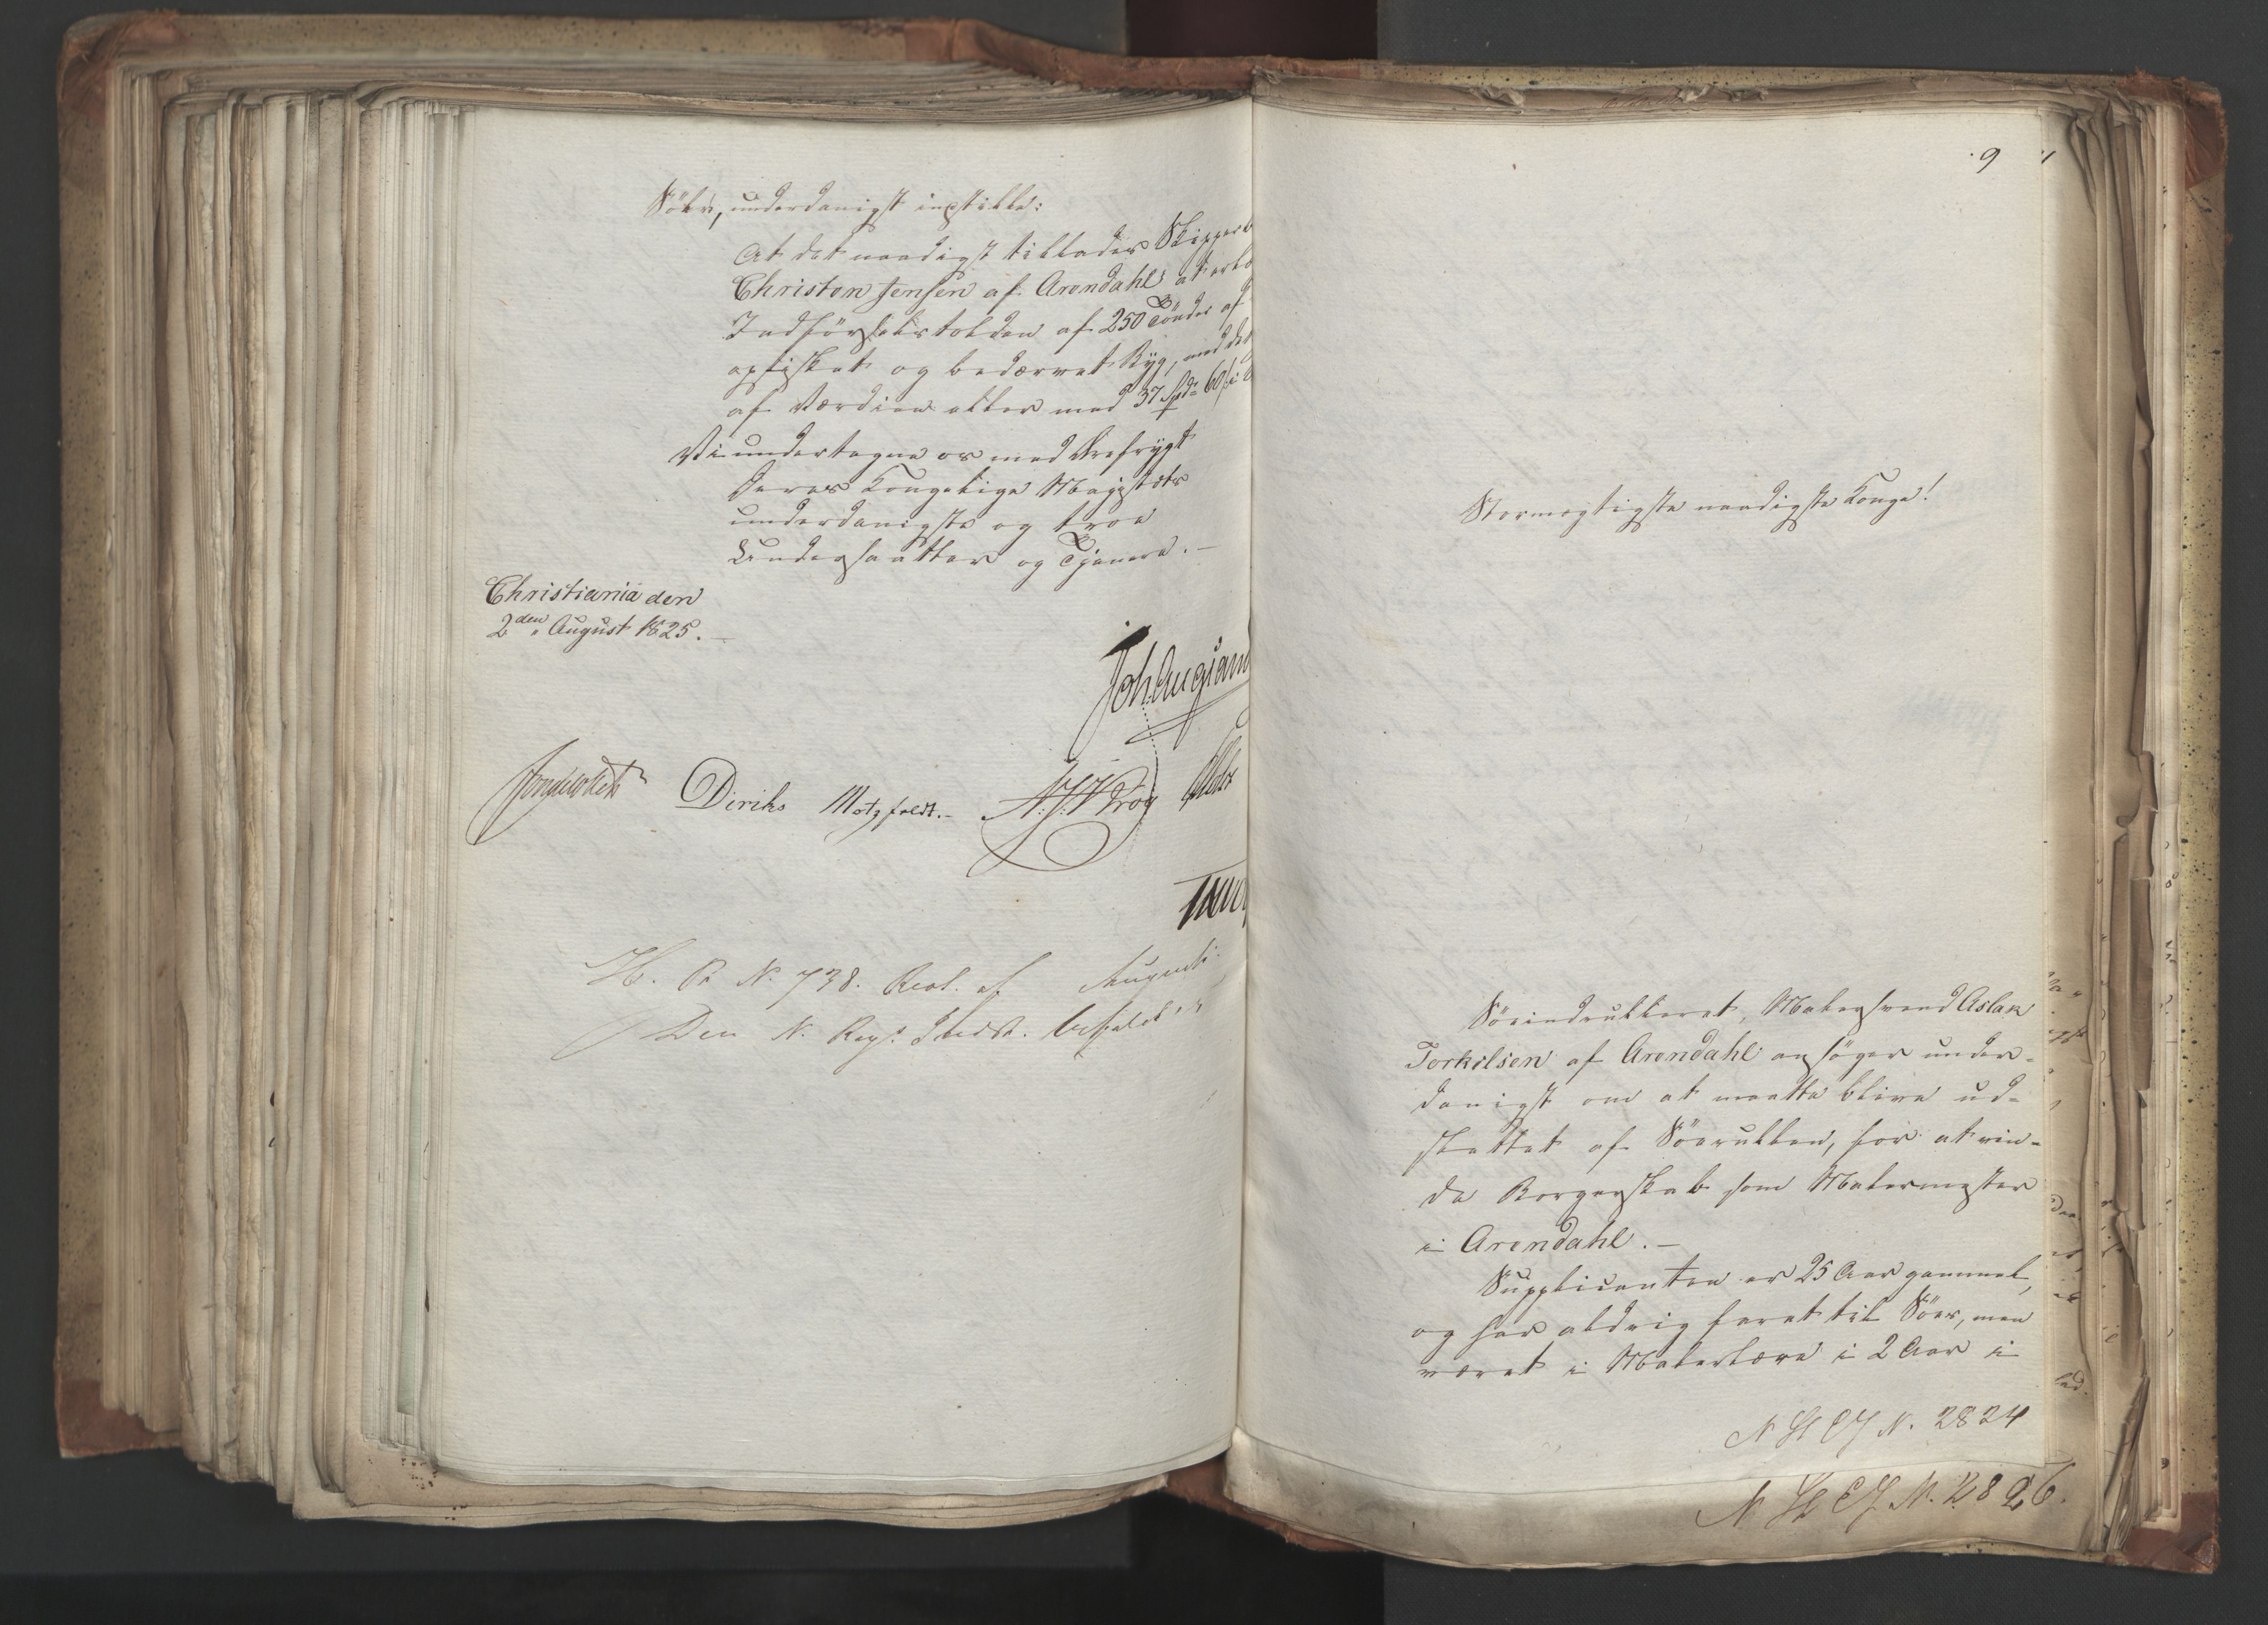 Følge, underdanigst indstille:
At det naadigst tillades Skipper
Christen Jensen af Arendahl at erlæ
Indførselstolden af 250 Tönder af
opfisket og bedærvet Byg, med det
af Værdien eller med 37 Spd 60 s i
Vi undertegne os med Ærefrygt
Deres Kongelige Majestæts
underdanigste og troe
Undersaatter og Tjenere. –
Christiania den
2den August 1825. –
Joh. Aug: Sand
Diriks Motzfeldt. –
H. R N. 738. Resol. af Augusti
Den N. Reg: Indst.
9
Stormægtigste naadigste Konge!
Söeindrulleret, Malersvend Aslak
Torkilsen af Arendahl ansöger under-
danigst om at maatte blive ud-
slettet af Söerullen, for at vin-
de Borgerskab som Malermester
i Arendahl. –
Supplicanten er 25 Aar gammel,
og har aldrig faret til Söes, men
været i Malerlære i 2 Aar i
N. 2824
N. 2826.